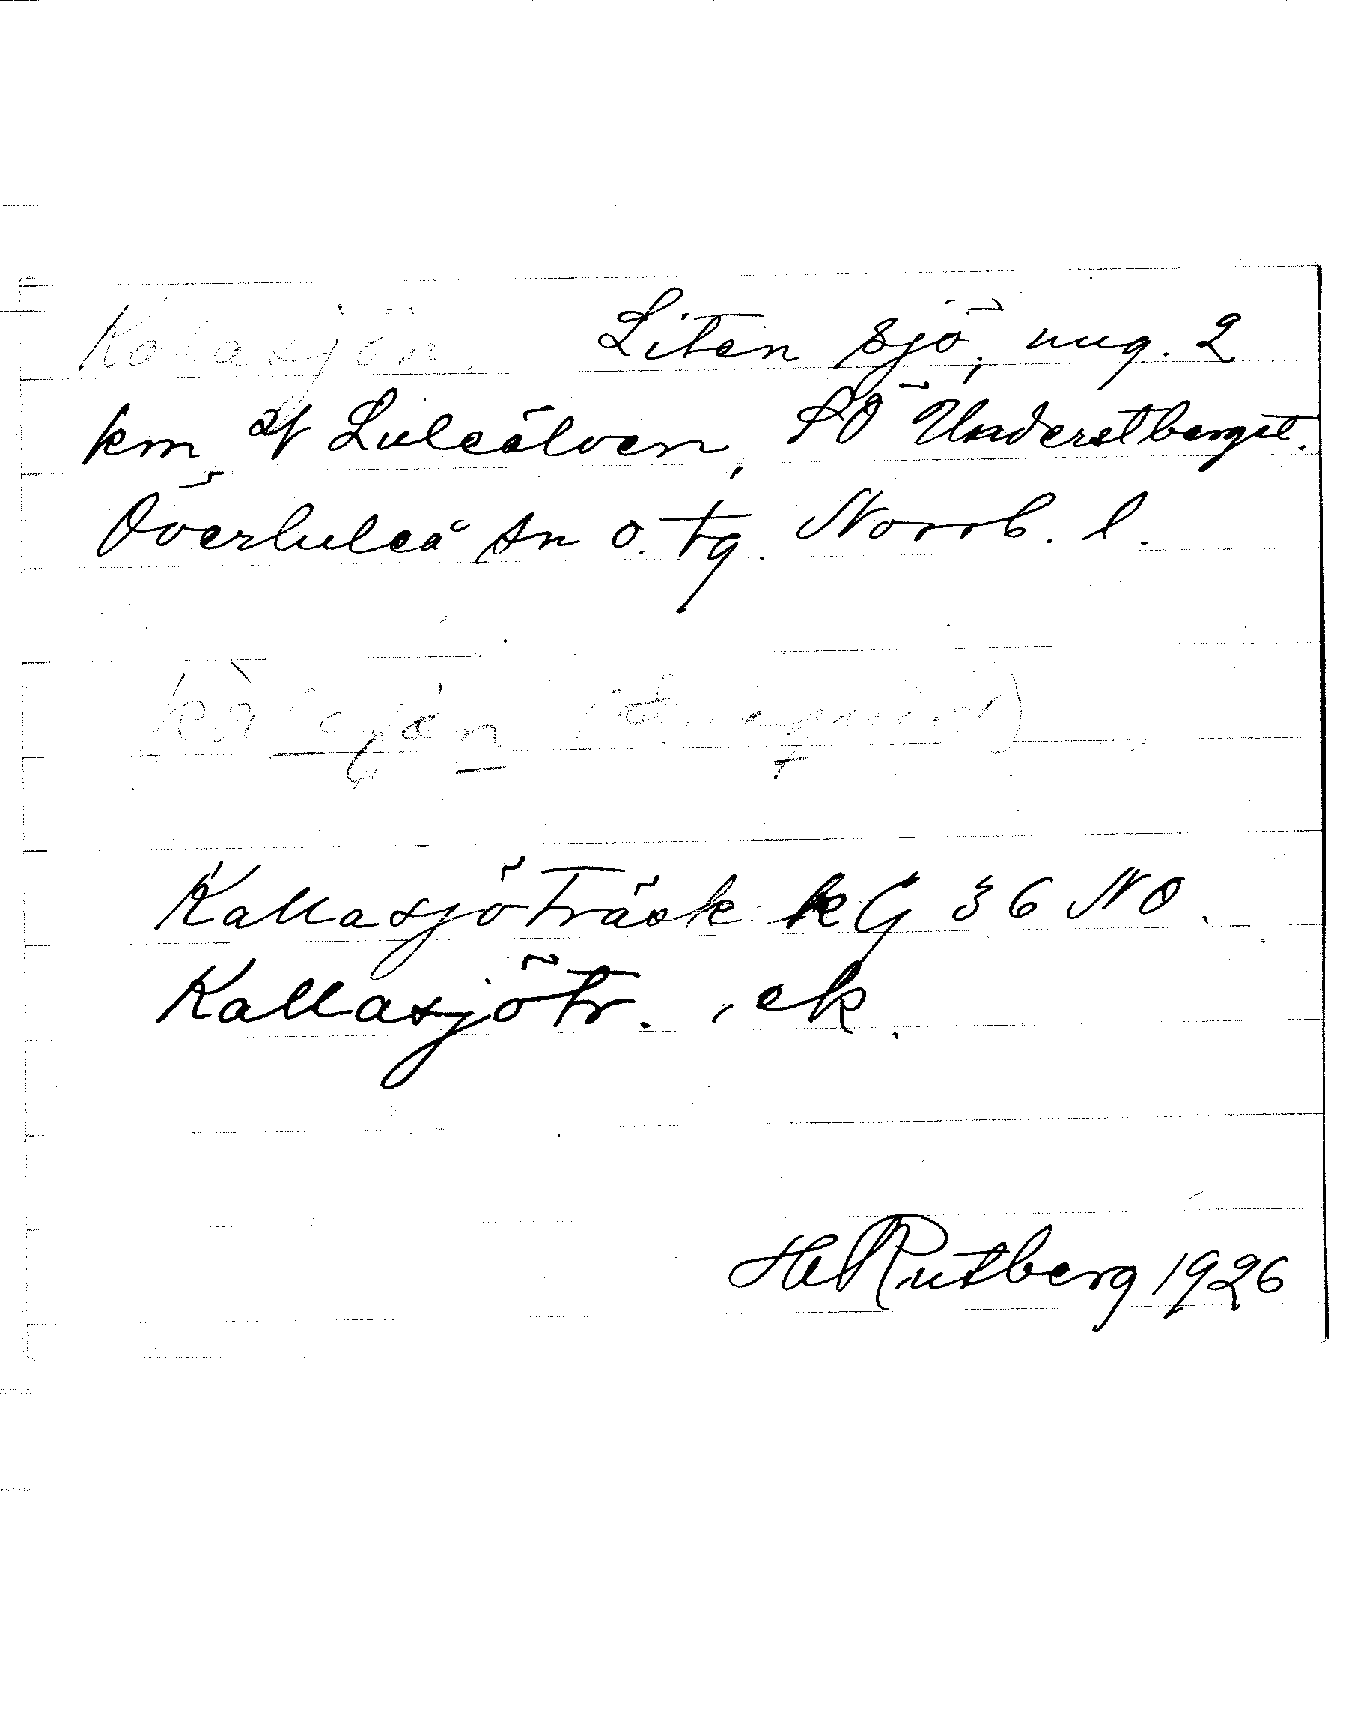 Kolasjön. Liten sjö, ung. 2
km af Luleälven, SÖ Understberget.
Överluleå sn o. tg. Norrb. l.
Kallasjöträsk kG 36 NO.
Kallasjötr. , ek.
H Rutberg 1926